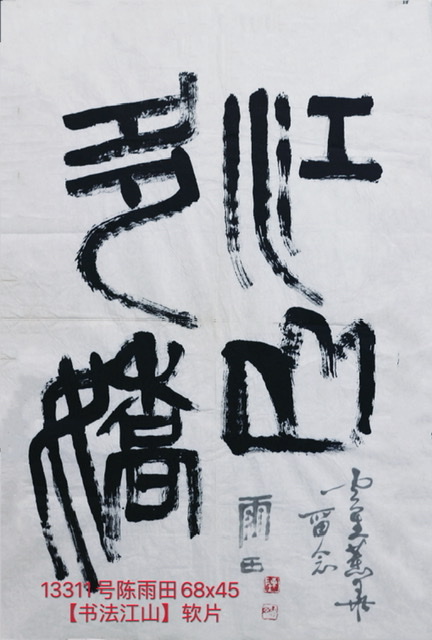 江山
多嬌
留念
雨田
13311号陈雨田68x45
【书法江山】软片